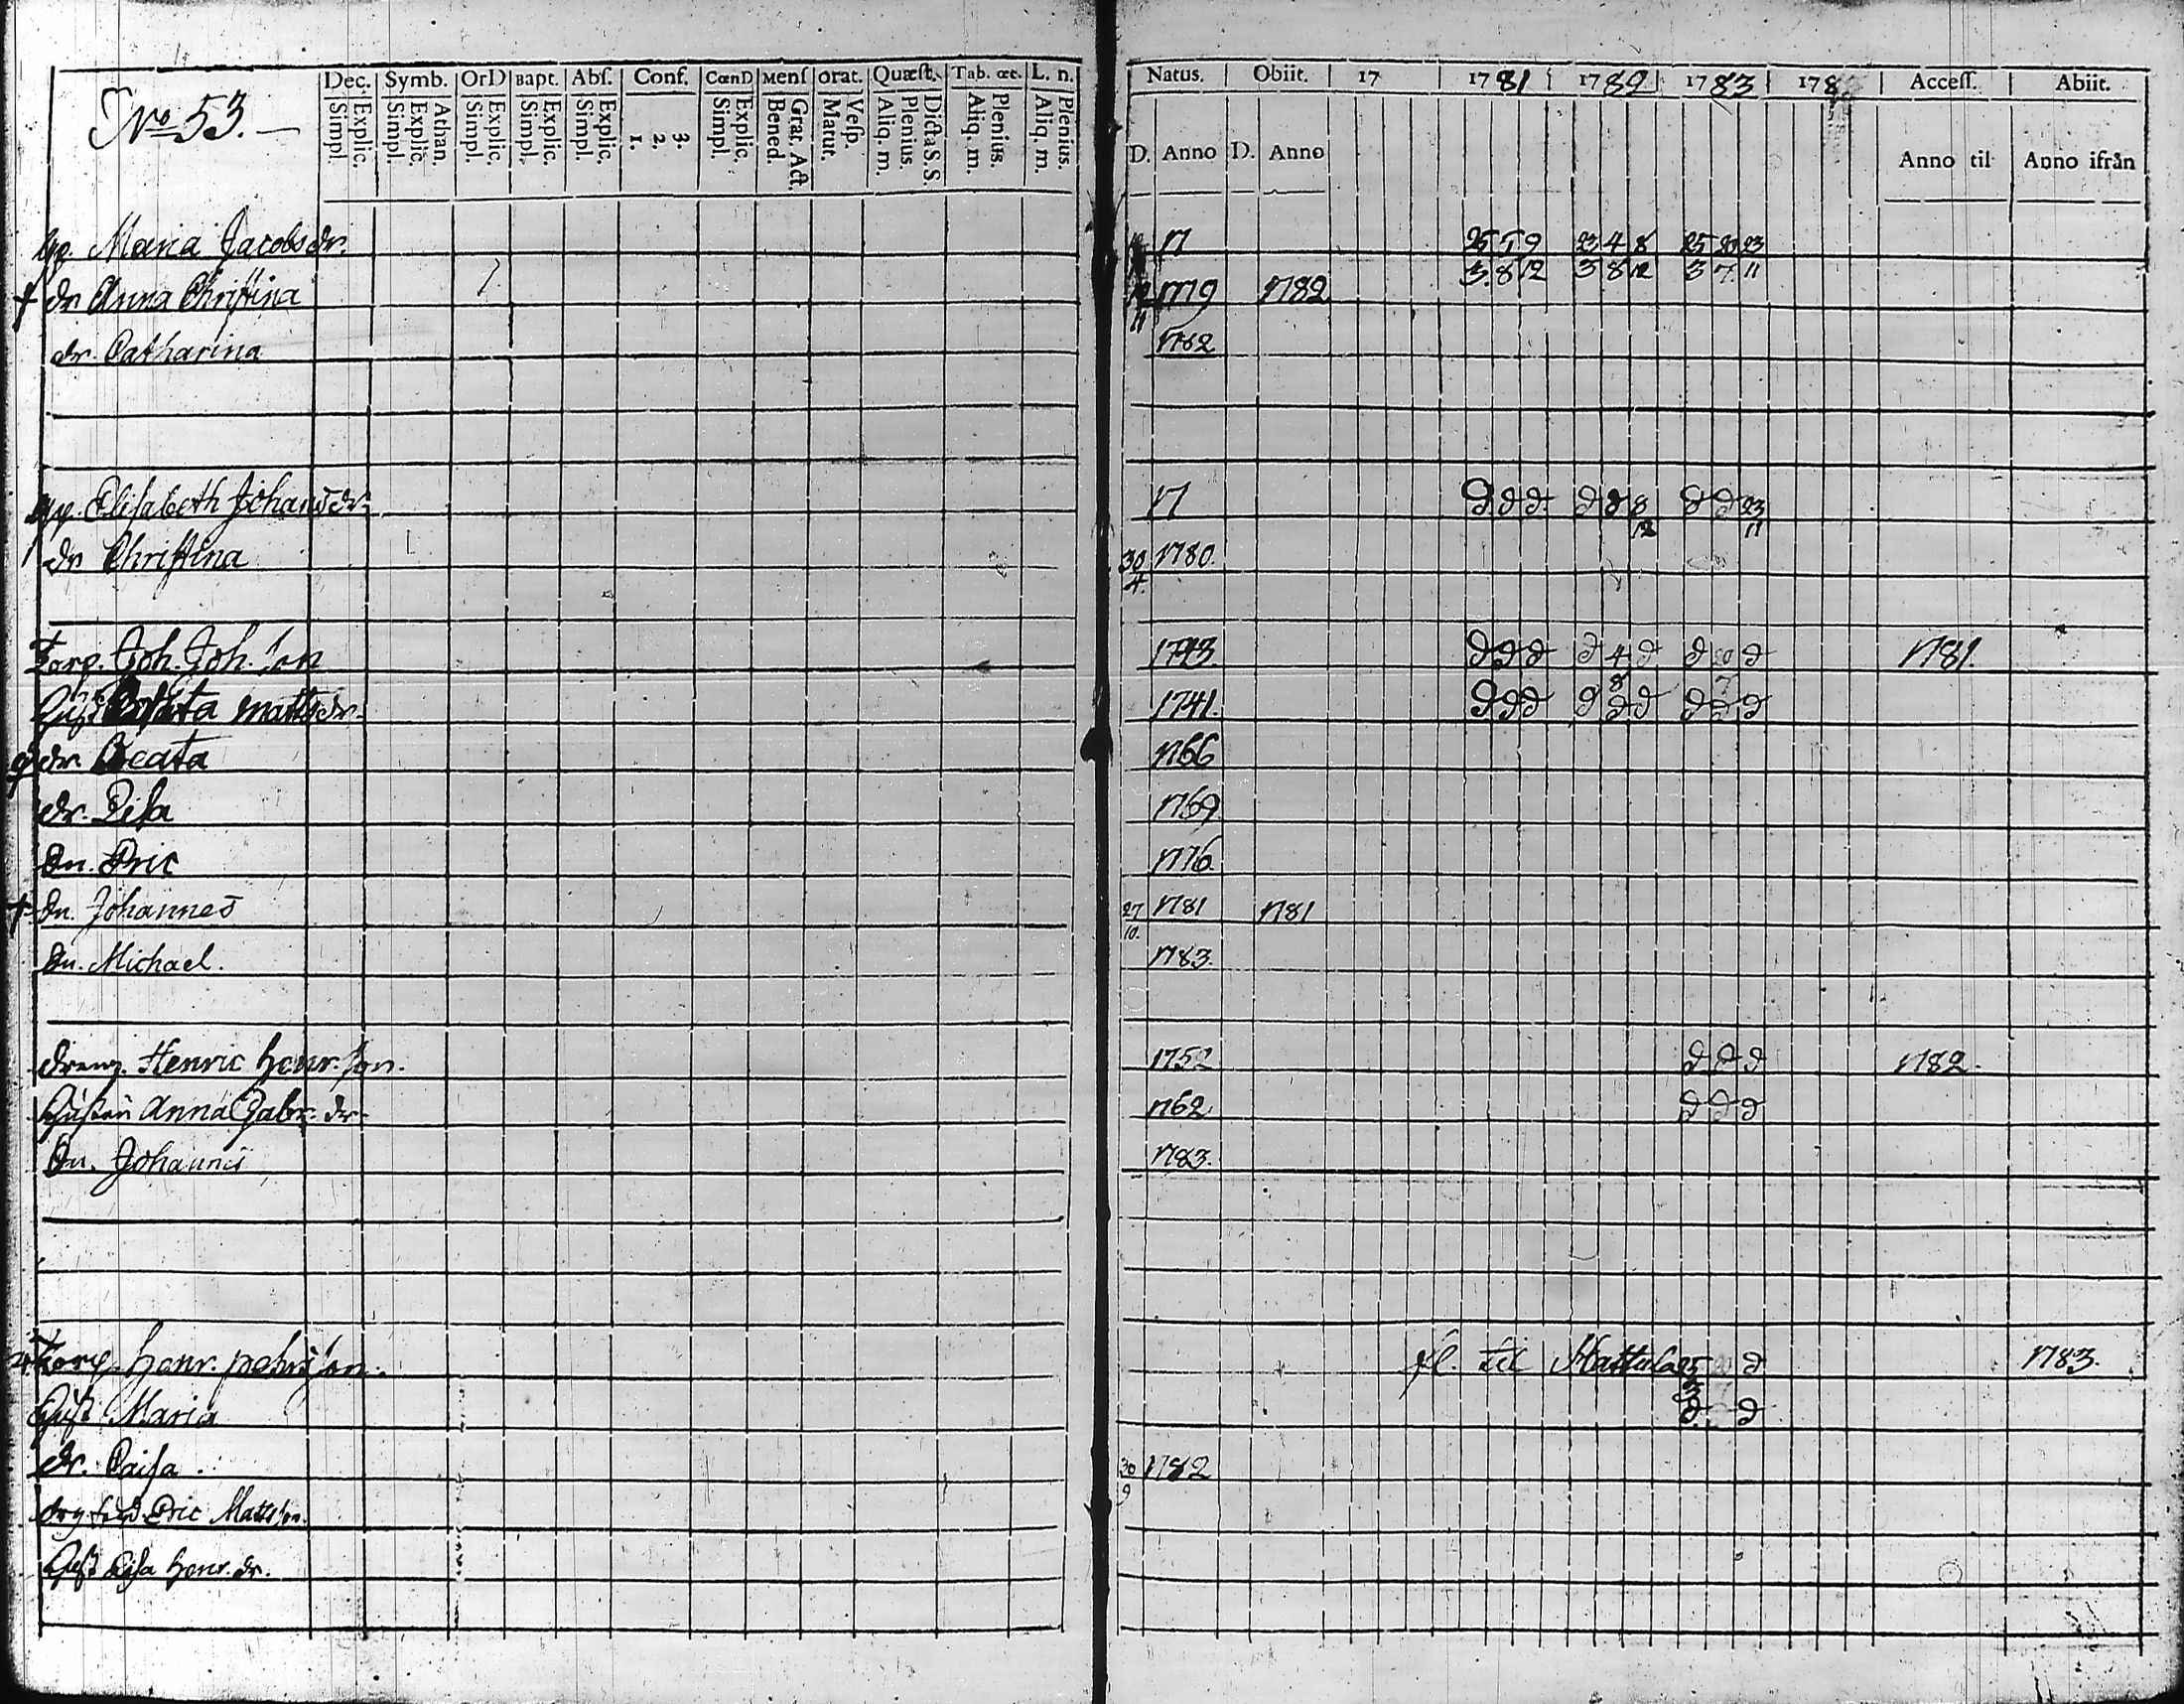 No 53.
Dec. Symb. OrD Bapt. Abſ. Conf. CœnD Menſ Orat. Quæſt. Tab. œc. L. n.
Simpl. Explic. Simpl. Explic. Athan. Simpl. Explic. Simpl. Explic. Simpl. Explic. 1. 2. 3. Simpl. Explic. Bened. Grat. Act. Matut. Veſp. Aliq. m. Plenius. Dicta S. S. Aliq. m. Plenius. Aliq. m. Plenius.
Natus. Obiit. 17 1781 1782 1783 178 Acceſſ. Abiit.
D. Anno D. Anno Anno til Anno ifrån
Maria Jacobsdr. 17 25 5 9 23 4 8 25 20 23
3. 8 12 3 8 12 3 7. 11
† dr Anna Christina 1779 1782
11
dr. Catharina 1762
Elisabeth Johansdr. 17 d d d d d 8 d d 23
12 11
dr Christina 30 1780.
4.
Torp. Joh. Joh. son 1743 d d d d 4 d d 20 d 1781.
8 7
Hust Beata Mattsdr. 1741. d d d d d d d d d
dr. Beata 1766
dr. Lisa 1769
Sn. Eric 1776.
† Sn. Johannes 27 1781 1781
10.
Sn. Michael. 1783.
dreng. Henric Henr. son. 1752 d d d 1782.
Hustru Anna Gabr. dr. 1762 d d d
Sn. Johannes 1783.
Torp. Henr. son. fl. til Mattula 25 20 d 1783.
3
Hust Maria d. d
dr. Caisa. 30 1782
9
Eric Mattsson.
Hust Lisa Henr. dr.